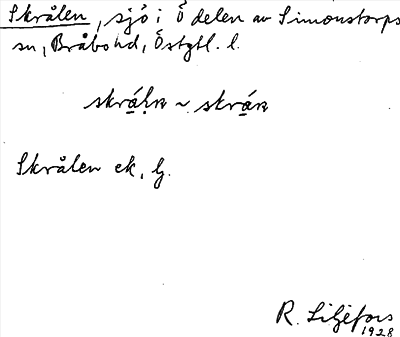 Skrålen, sjö i Ö delen av Simonstorps
sn, Bråbo hd, Östgtl. l.
Skrålen ek, lg.
R. Liljefors
1928